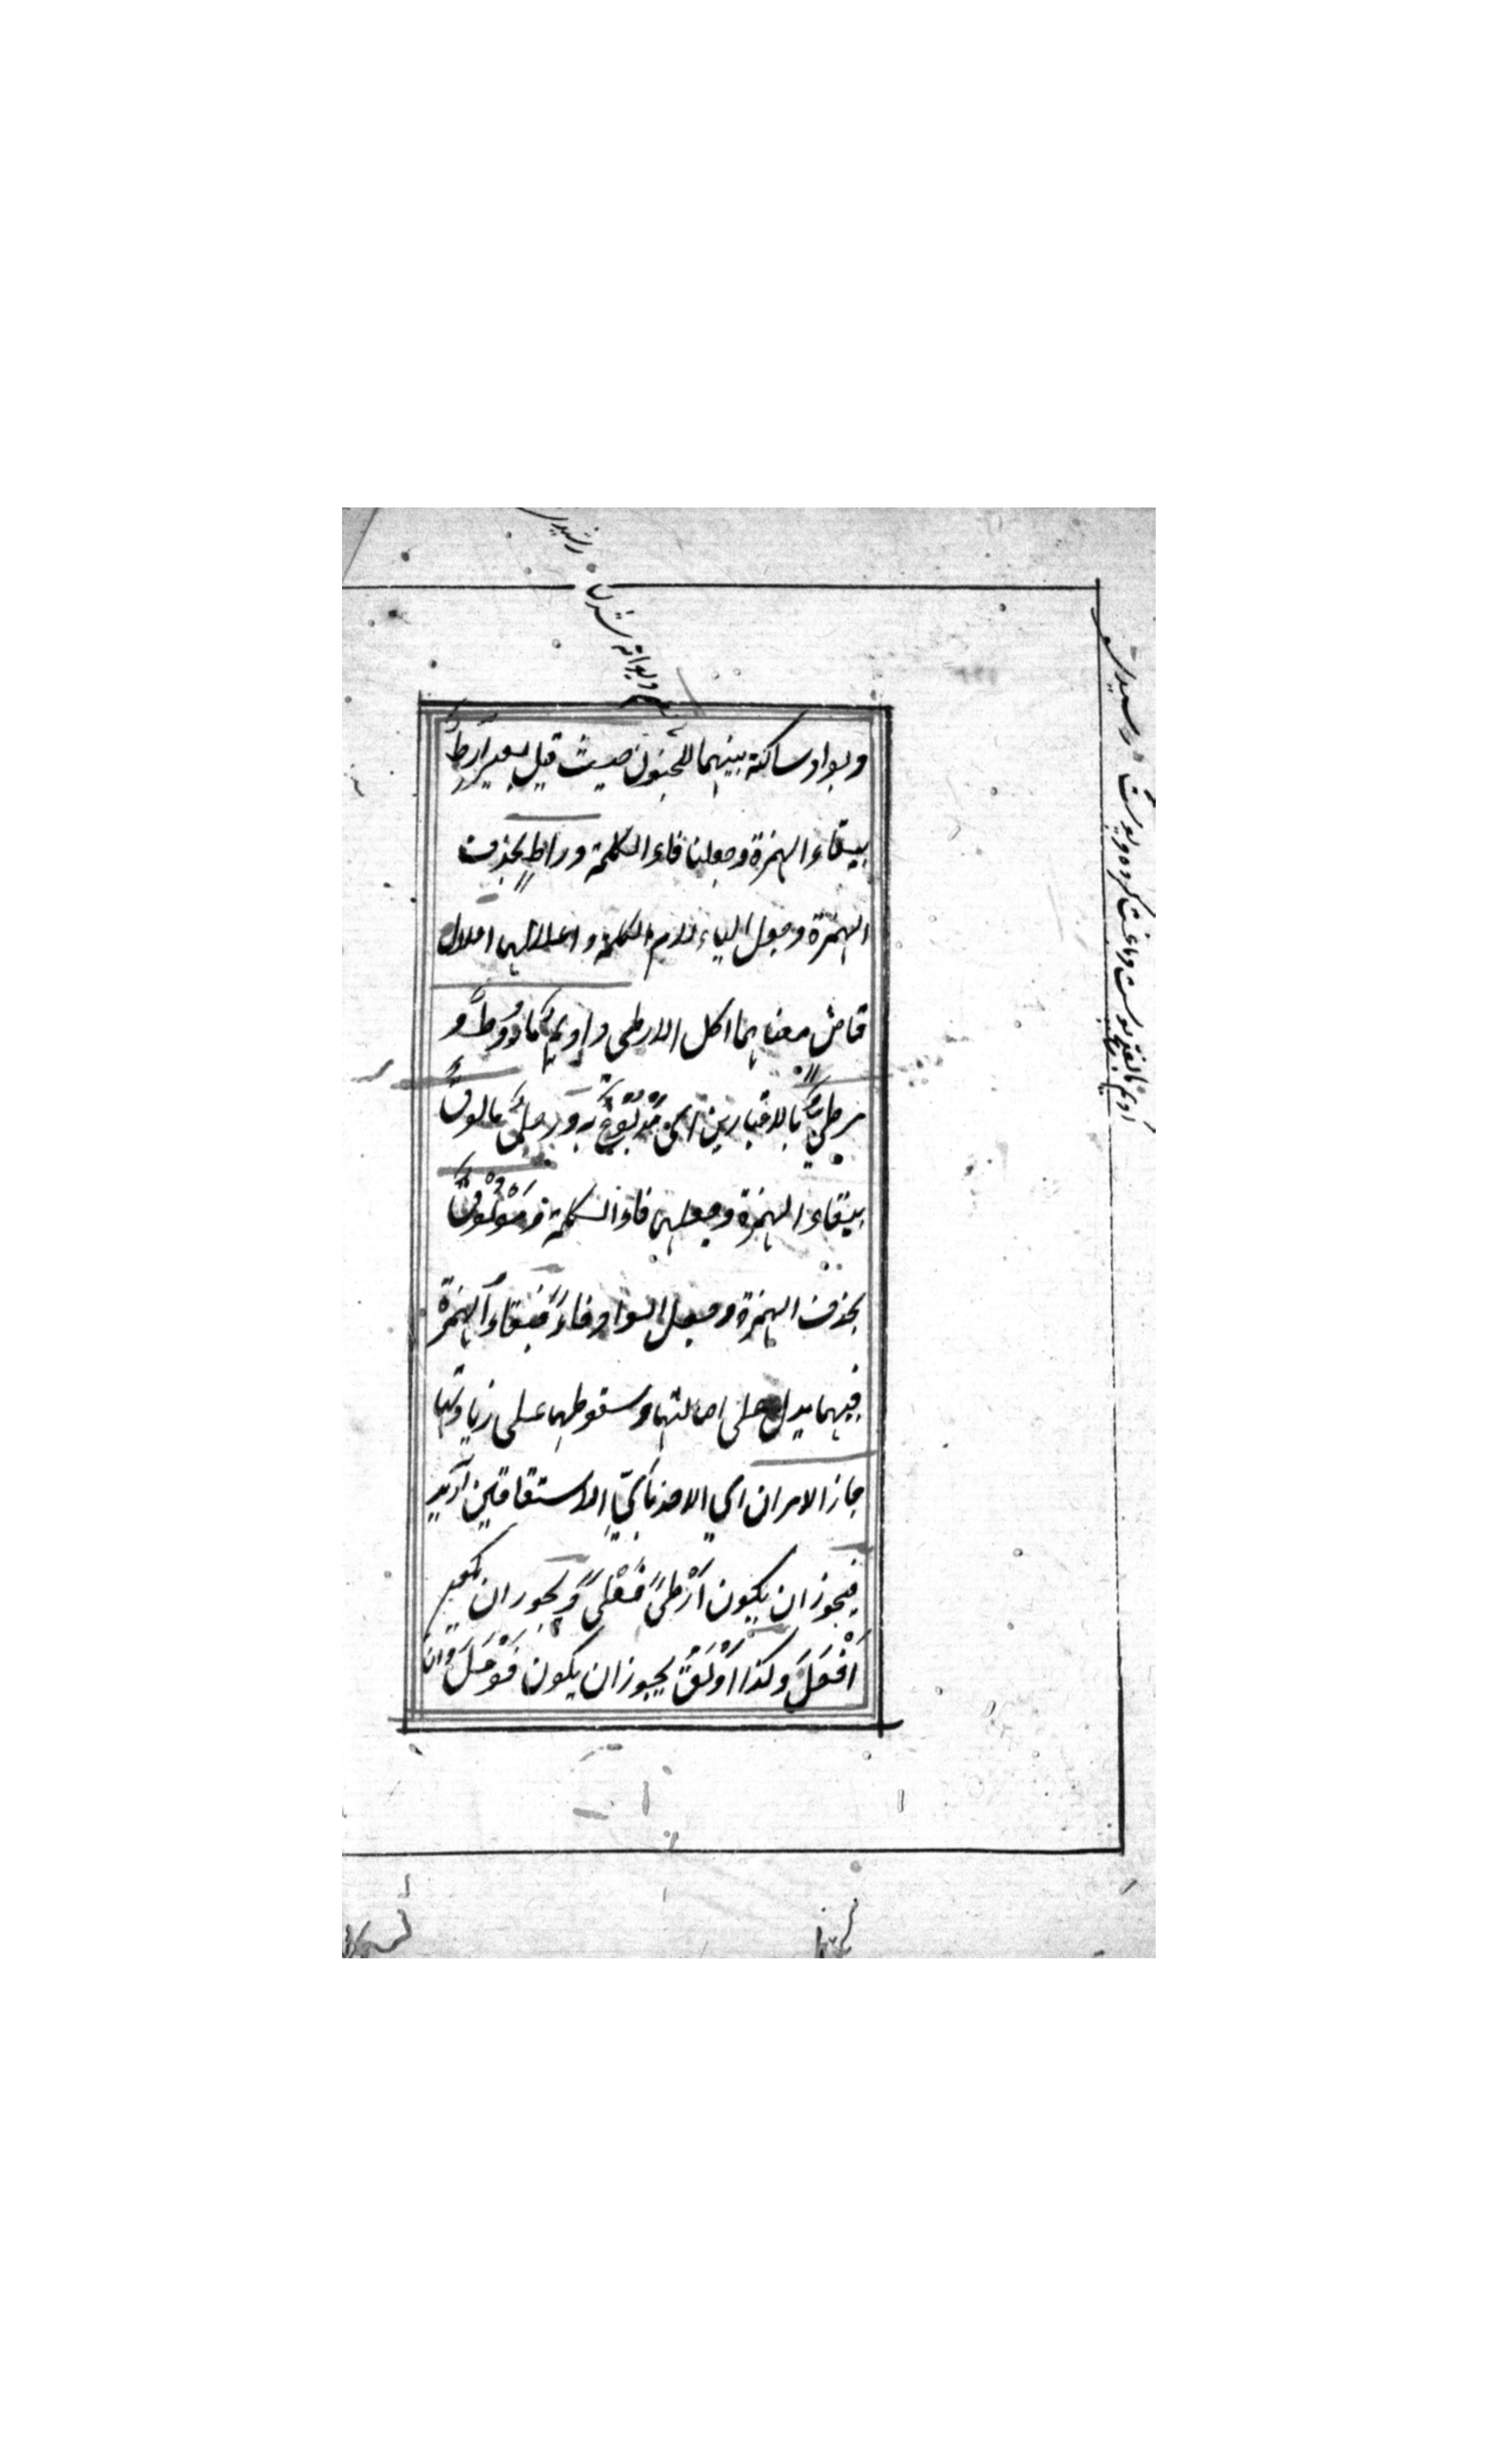 وبواو ساكنة بينهما للجنون حيث قيل بعير آرط
ببقاء الهمزة وجعلها فاء الكلمة وراط بحذف
الهمزة وجعل الياء لام الكلمة واعلالها اعلال
قاض معناهما اكل الارطى واديم ماروط و
مرطي بالاعتبارين اي مدبوغ به ورجل مالوق
ببقاء الهمزة وجعلها فاء الكلمة ومولوق
بحذف الهمزة وجعل الواو فاء فبقاء الهمزة
فيهما يدل على اصالتها وسقوطها على زيادتها
جاز الامران اي الاخذ باي الاشتقاقين اريد
فيجوز ان يكون أرطى فعلى ويجوز ان يكون
أفعل وكذا أولق يجوز ان يكون فوعل وان